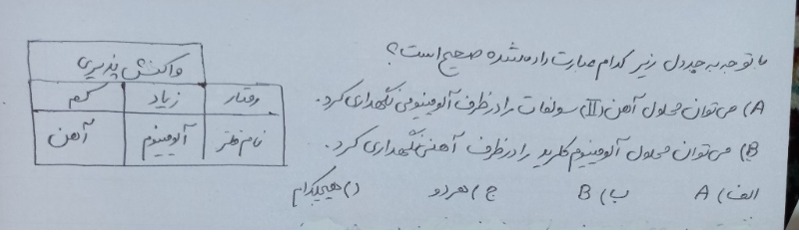 با توجه به جدول زیر کدام عبارت داده شده صحیح است؟
A) می‌توان محلول آهن (II) سولفات را در ظرف آلومینیومی نگهداری کرد.
B) می‌توان محلول آلومینیوم کلرید را در ظرف آهنی نگهداری کرد.
الف) A ب) B ج) هر دو د) هیچکدام
واکنش پذیری
رفتار زیاد کم
نام فلز آلومینیوم آهن